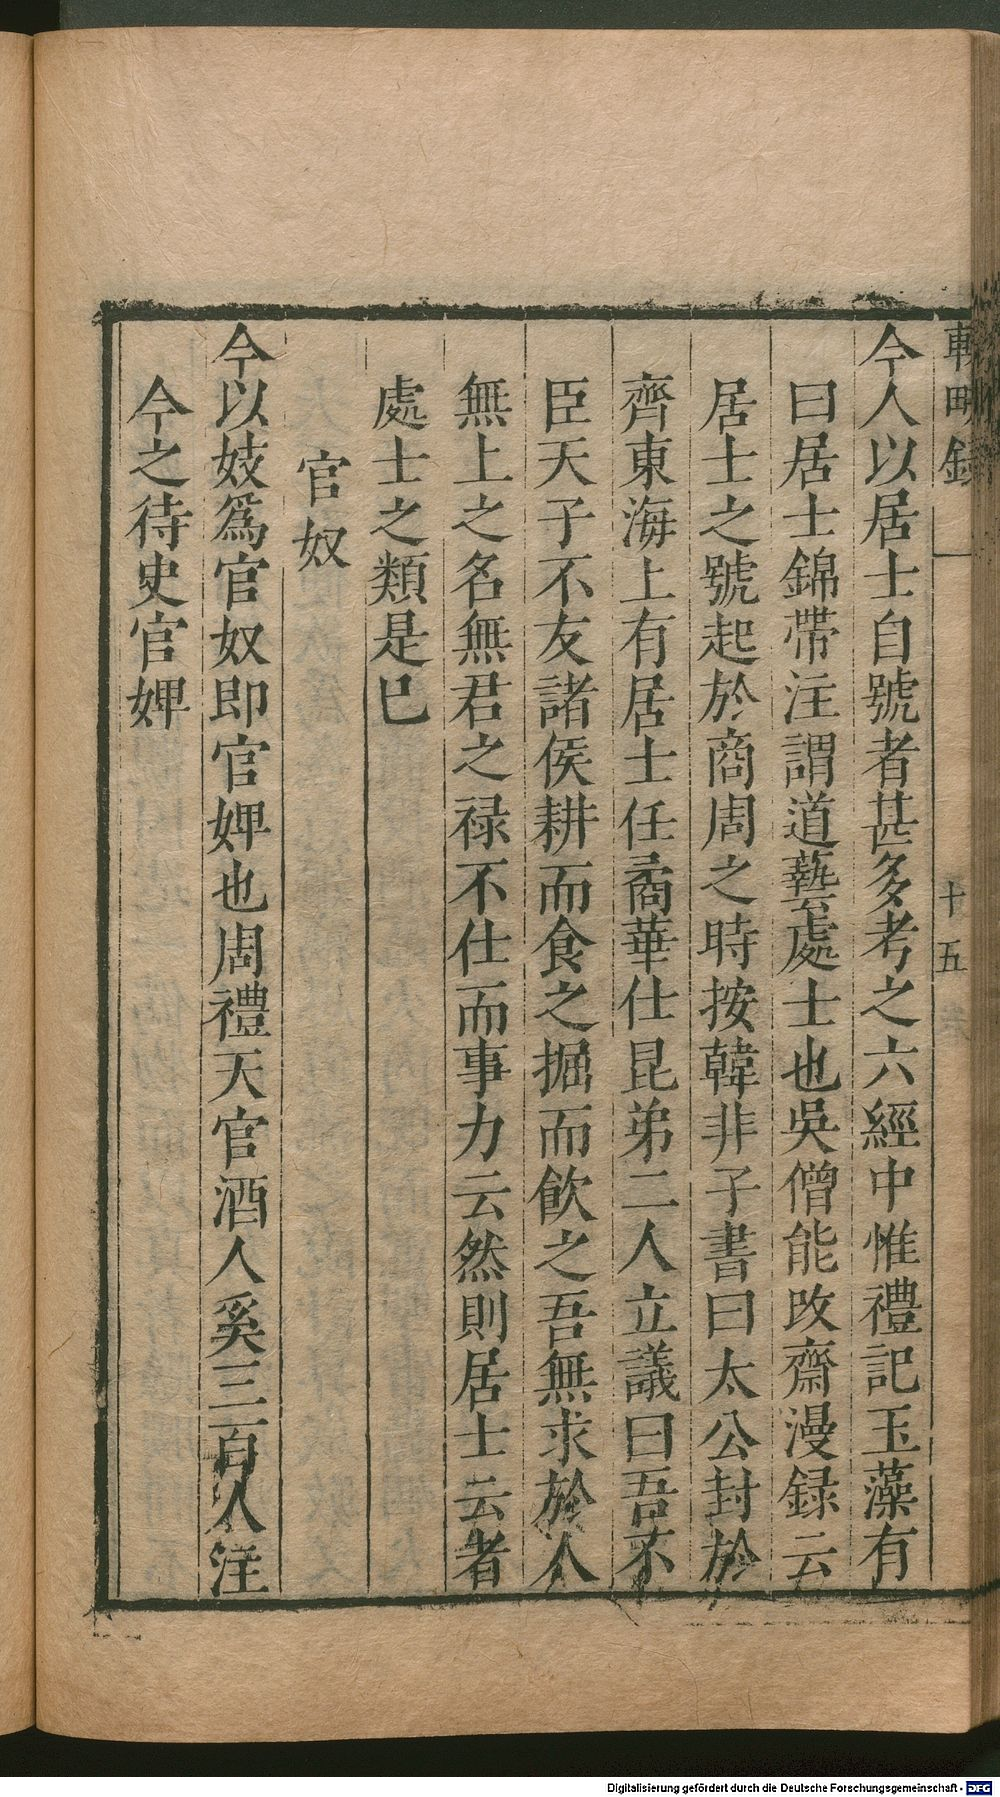 輟畊録
十五
今人以居士自號者甚多考之六經中惟禮記玉藻有
曰居士錦帶注謂道藝處士也吳僧能改齋漫録云
居士之號起於商周之時按韓非子書曰太公封於
齊東海上有居士任矞華仕昆弟二人立議曰吾不
臣天子不友諸侯耕而食之掘而飲之吾無求於人
無上之名無君之禄不仕而事力云然則居士云者
處士之類是巳
官奴
今以妓爲官奴即官婢也周禮天官酒人奚三百人注
今之待史官婢
Digitalisierung gefördert durch die Deutsche Forschungsgemeinschaft - DFG